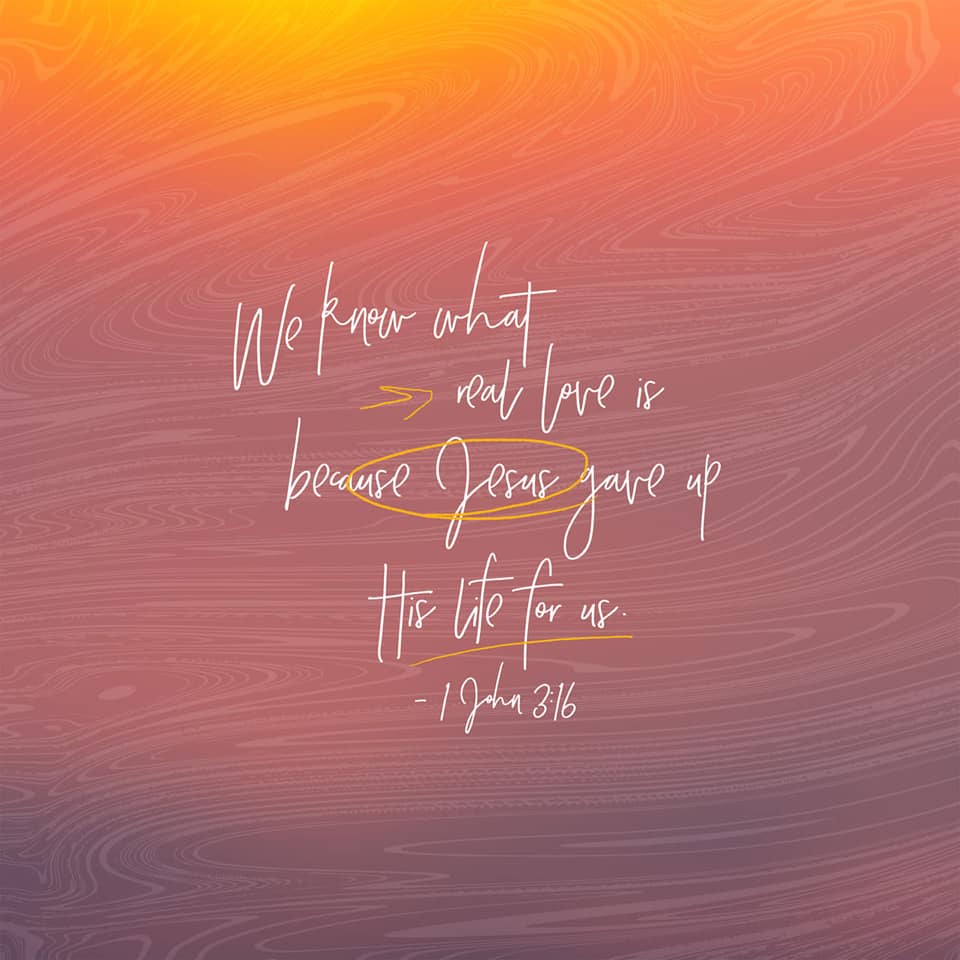 We know what
real love is
because Jesus gave up
His life for us.
- 1 John 3:16